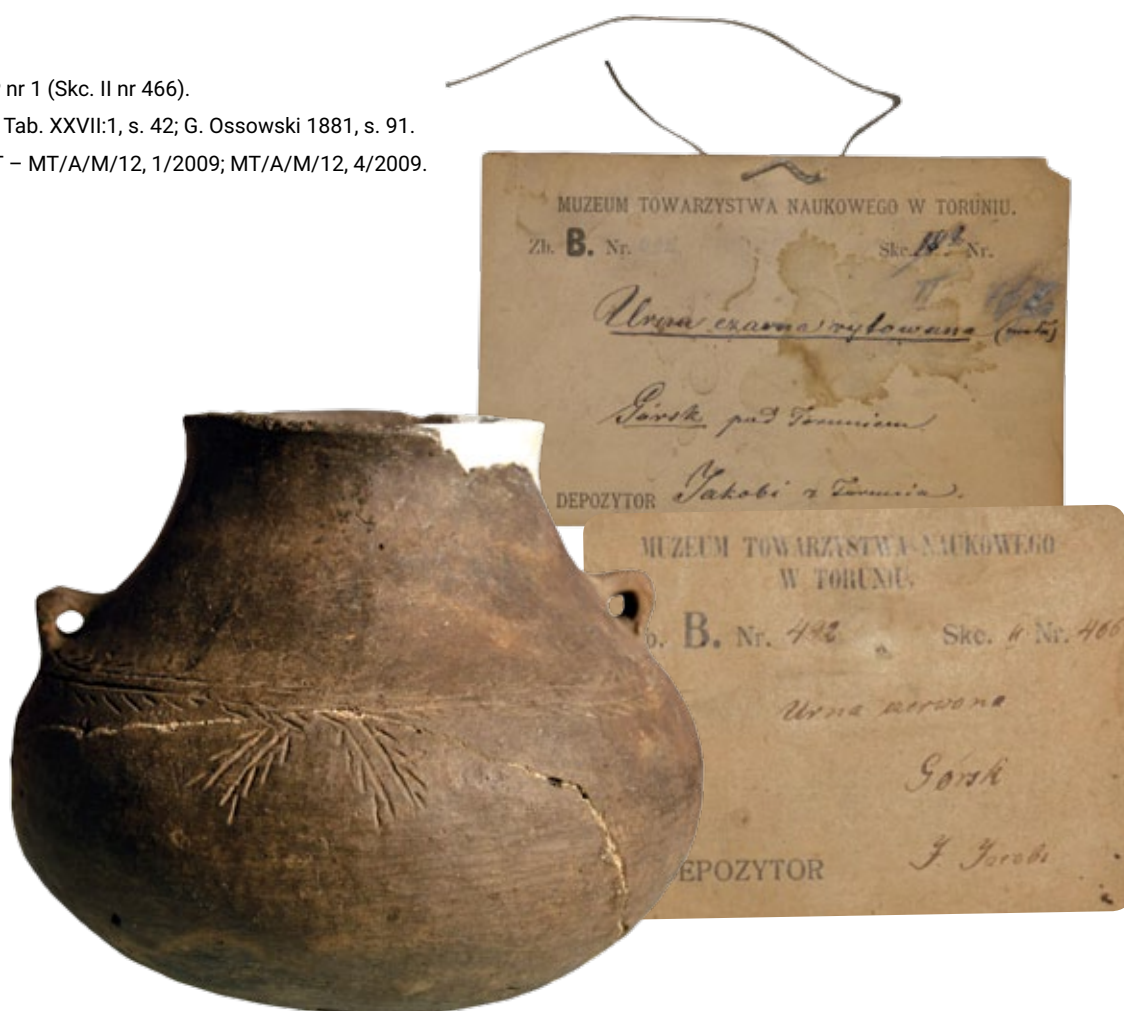 nr 1 (Skc. II nr 466).
Tab. XXVII:1, s. 42; G. Ossowski 1881, s. 91.
– MT/A/M/12, 1/2009; MT/A/M/12, 4/2009.
MUZEUM TOWARZYSTWA NAUKOWEGO W TORUNIU.
Zb. B. Nr. Skc. Nr.
Urna czarna rytowana
Górsk pod Toruniem
DEPOZYTOR Jakobi z Torunia.
MUZEUM TOWARZYSTWA NAUKOWEGO
W TORUNIU.
B. Nr. 492 Skc. II Nr. 466
Urna czerwona
Górsk
DEPOZYTOR J. Jacobi